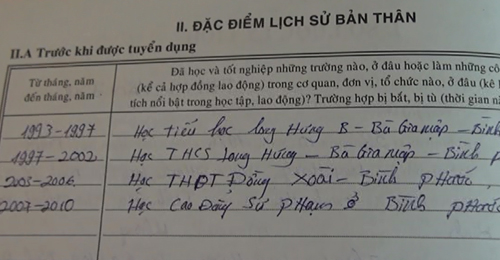 II. ĐẶC ĐIỂM LỊCH SỬ BẢN THÂN
II.A Trước khi được tuyển dụng
Từ tháng, năm
đến tháng, năm
Đã học và tốt nghiệp những trường nào, ở đâu hoặc làm những cô
(kể cả hợp đồng lao động) trong cơ quan, đơn vị, tổ chức nào, ở đâu (kê
tích nổi bật trong học tập, lao động)? Trường hợp bị bắt, bị tù (thời gian n
1993-1997 Học tiểu học Long Hưng B - Bù Gia Mập - Bình
1997-2002 Học THCS Long Hưng - Bù Gia Mập - Bình P
2003-2006 Học THPT Đồng Xoài - Bình Phước
2007-2010 Học Cao Đẳng Sư Phạm ở Bình Phước